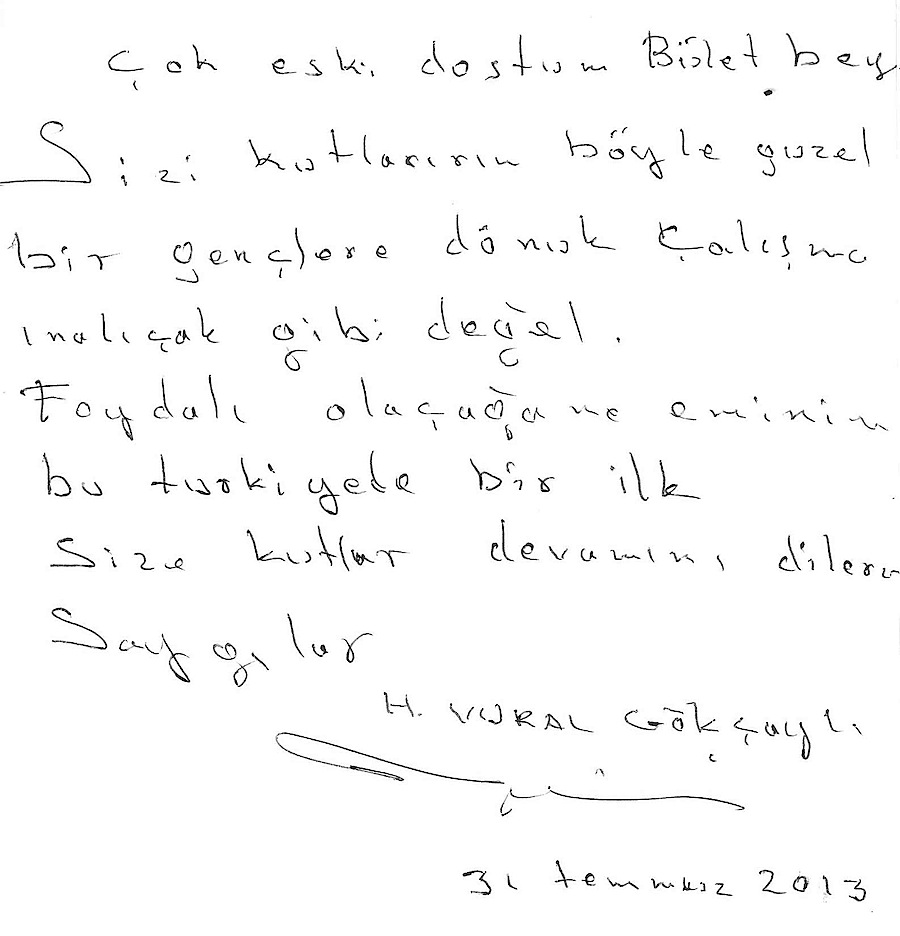 Çok eski dostum Bület bey
Sizi kutlarırın böyle guzel
bir gençlere dönuk çalışma
ınalıçak gibi değel.
Foydalı olaçağa ne eminim
bu turkiyede bir ilk
Size kutlar devamını dilerm
Saygılar
H. VURAL Gökçaylı
31 temmuz 2013